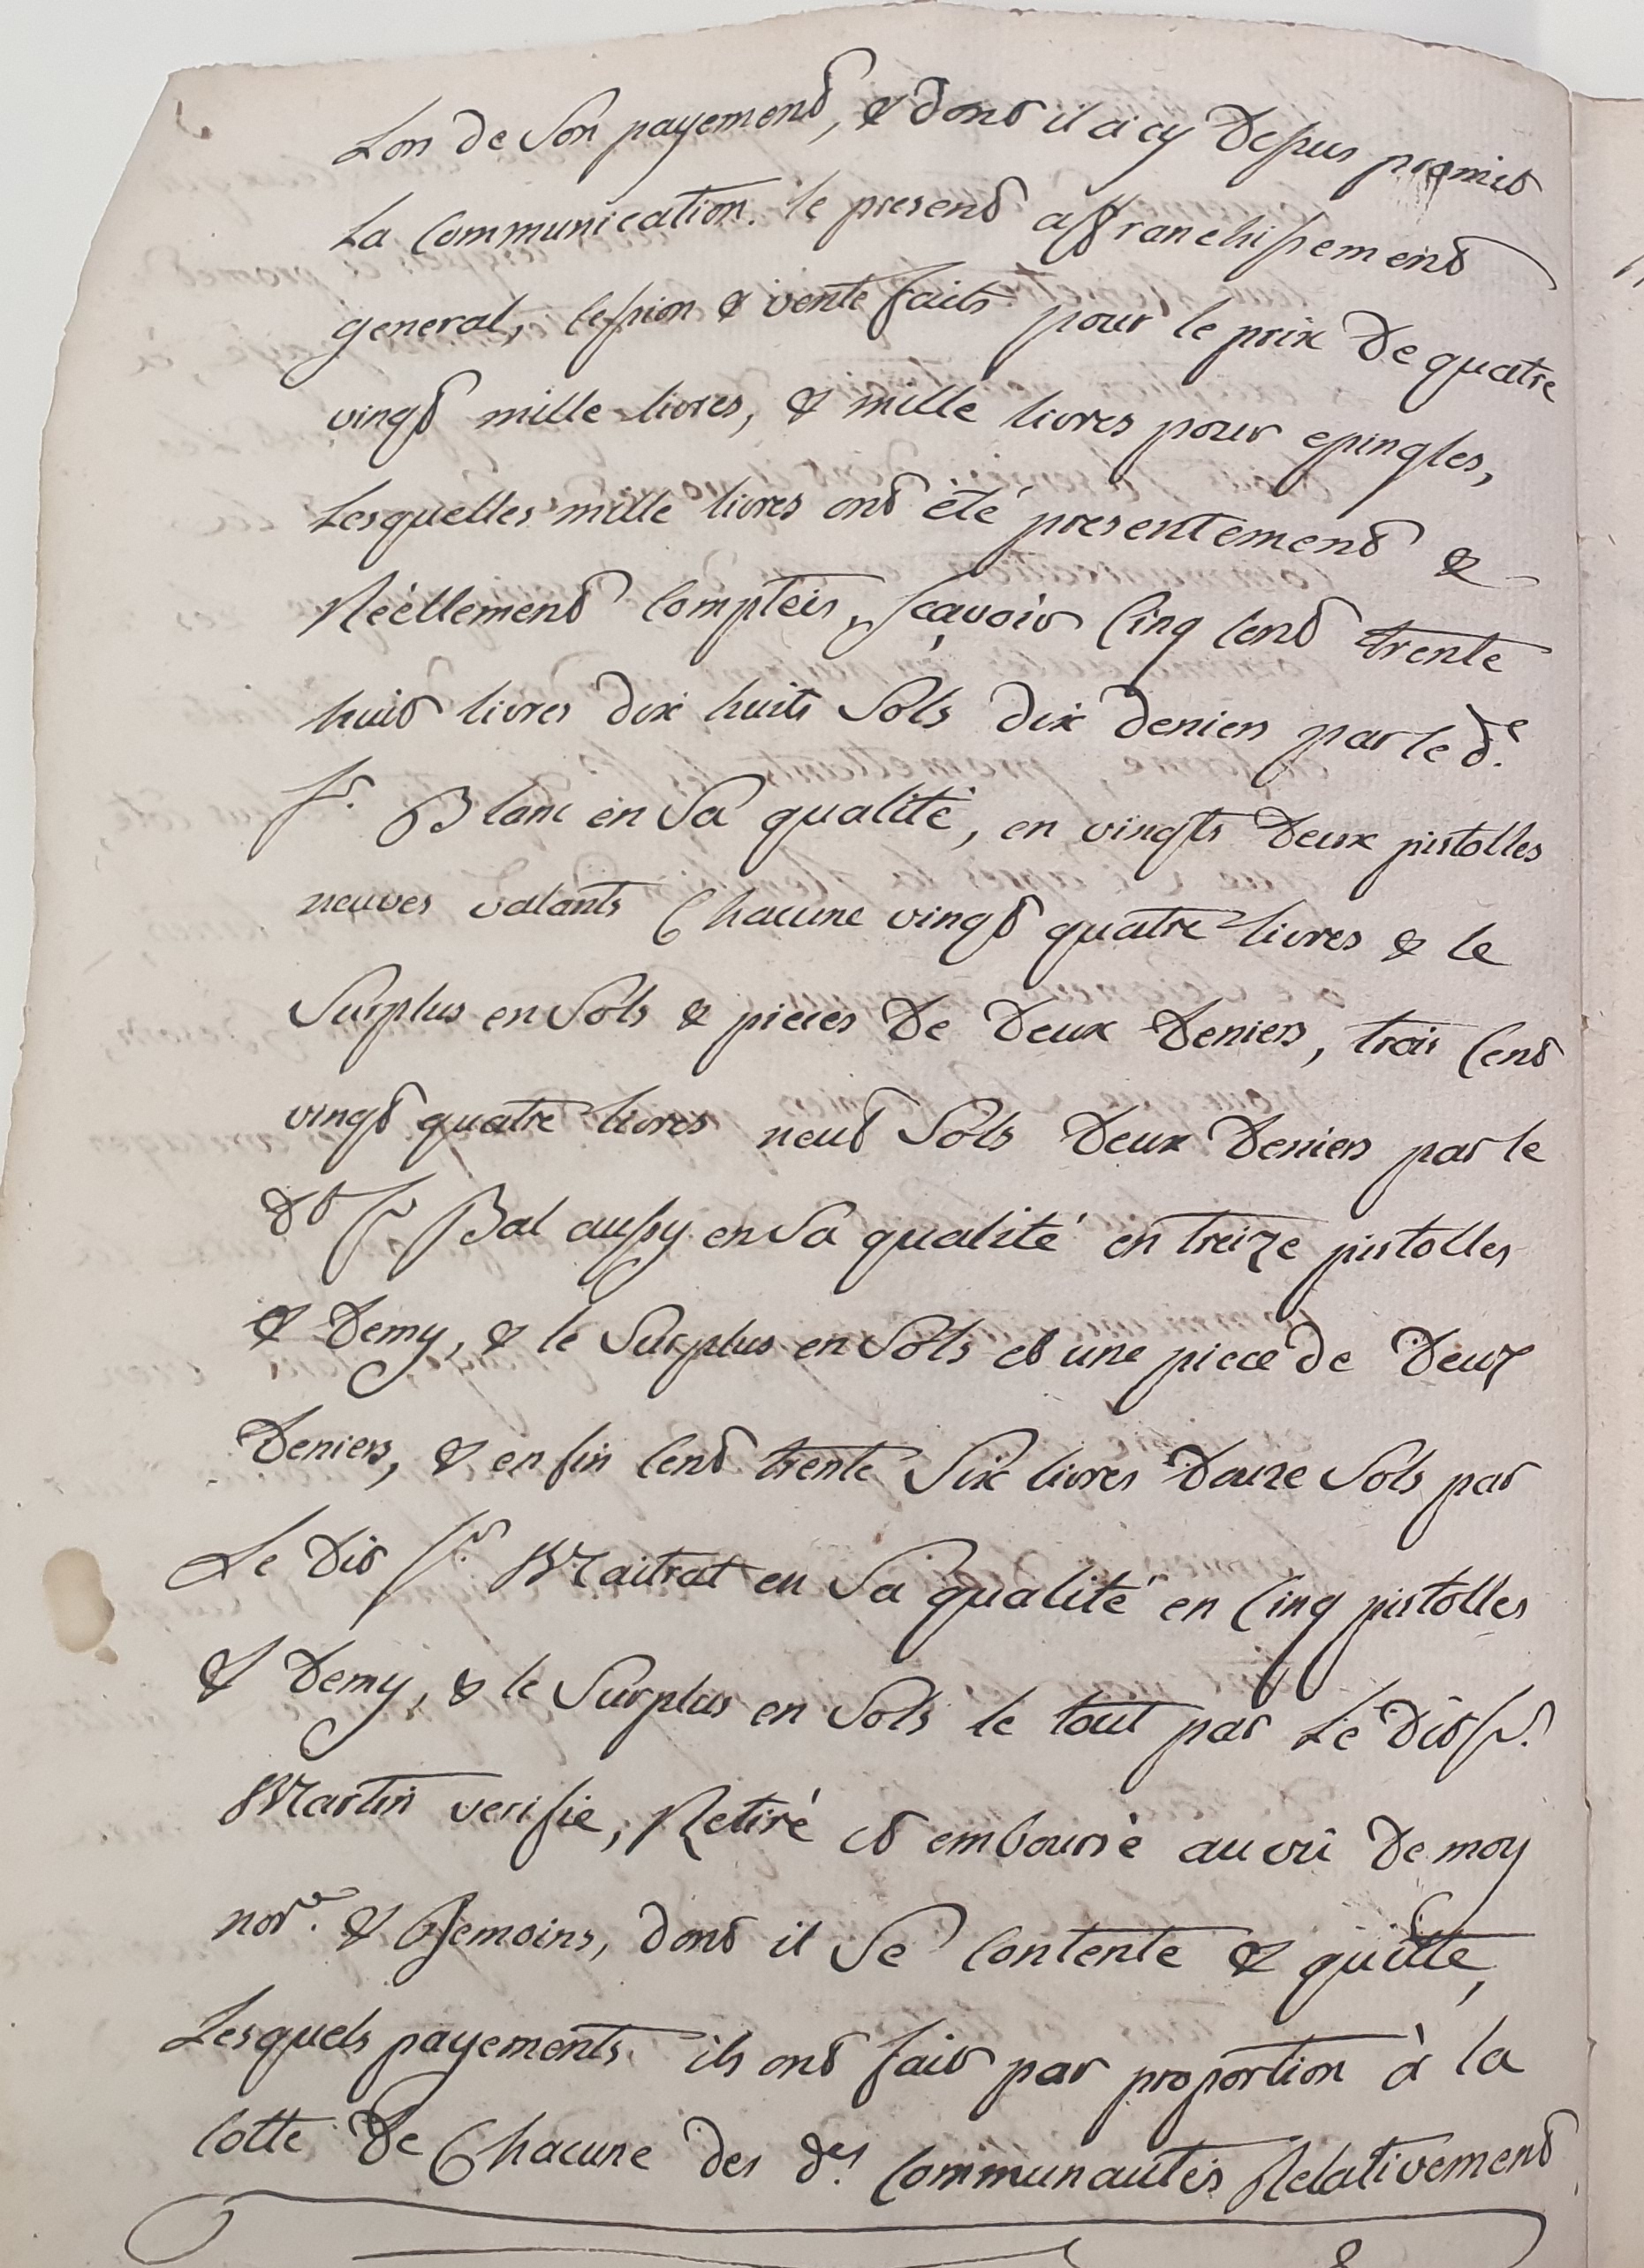 Lon de Son payement, & dont il a icy Dessus promis
La Communication. le present affranchissement
general, Cession & vente faits pour le prix De quatre
vingt mille livres, & mille livres pour epingles,
Lesquelles mille livres ont été presentement &
Réellement Comptéis, sçavoir Cinq Cent trente
huit livres dix huits Sols dix deniers par le dt.
Sr. Blanc en Sa qualité, en vingts Deux pistolles
neuves valants Chacune vingt quatre livres & le
Surplus en Sols & pieces De Deux Deniers, trois Cent
vingt quatre livres neuf Sols Deux Deniers par le
dt Sr Bal aussy en Sa qualité en treize pistolles
& Demy, & le Surplus en Sols et une piece de Deux
Deniers, & en fin Cent trente Six livres Douze Sols par
Le Dit Sr. Maitrat en Sa qualité en Cinq pistolles
& Demy, & le Surplus en Sols le tout par Le Dit Sr.
Martin verifie, Retiré et emboursé au vû De moy
nore. & Temoins, dont il Se Contente & quitte,
Lesquels payements ils ont fait par proportion à la
Cotte De Chacune des des. Communautés Relativement